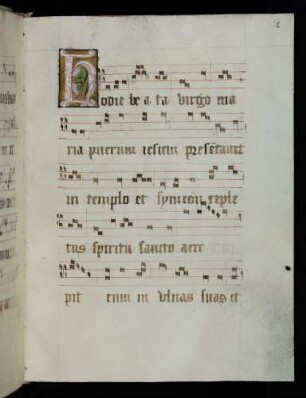 Hodie be a ta virgo ma
ria puerum iesum presentauit
in templo et symeon reple
tus spiritu sancto acce
pit eum in vlnas suas et